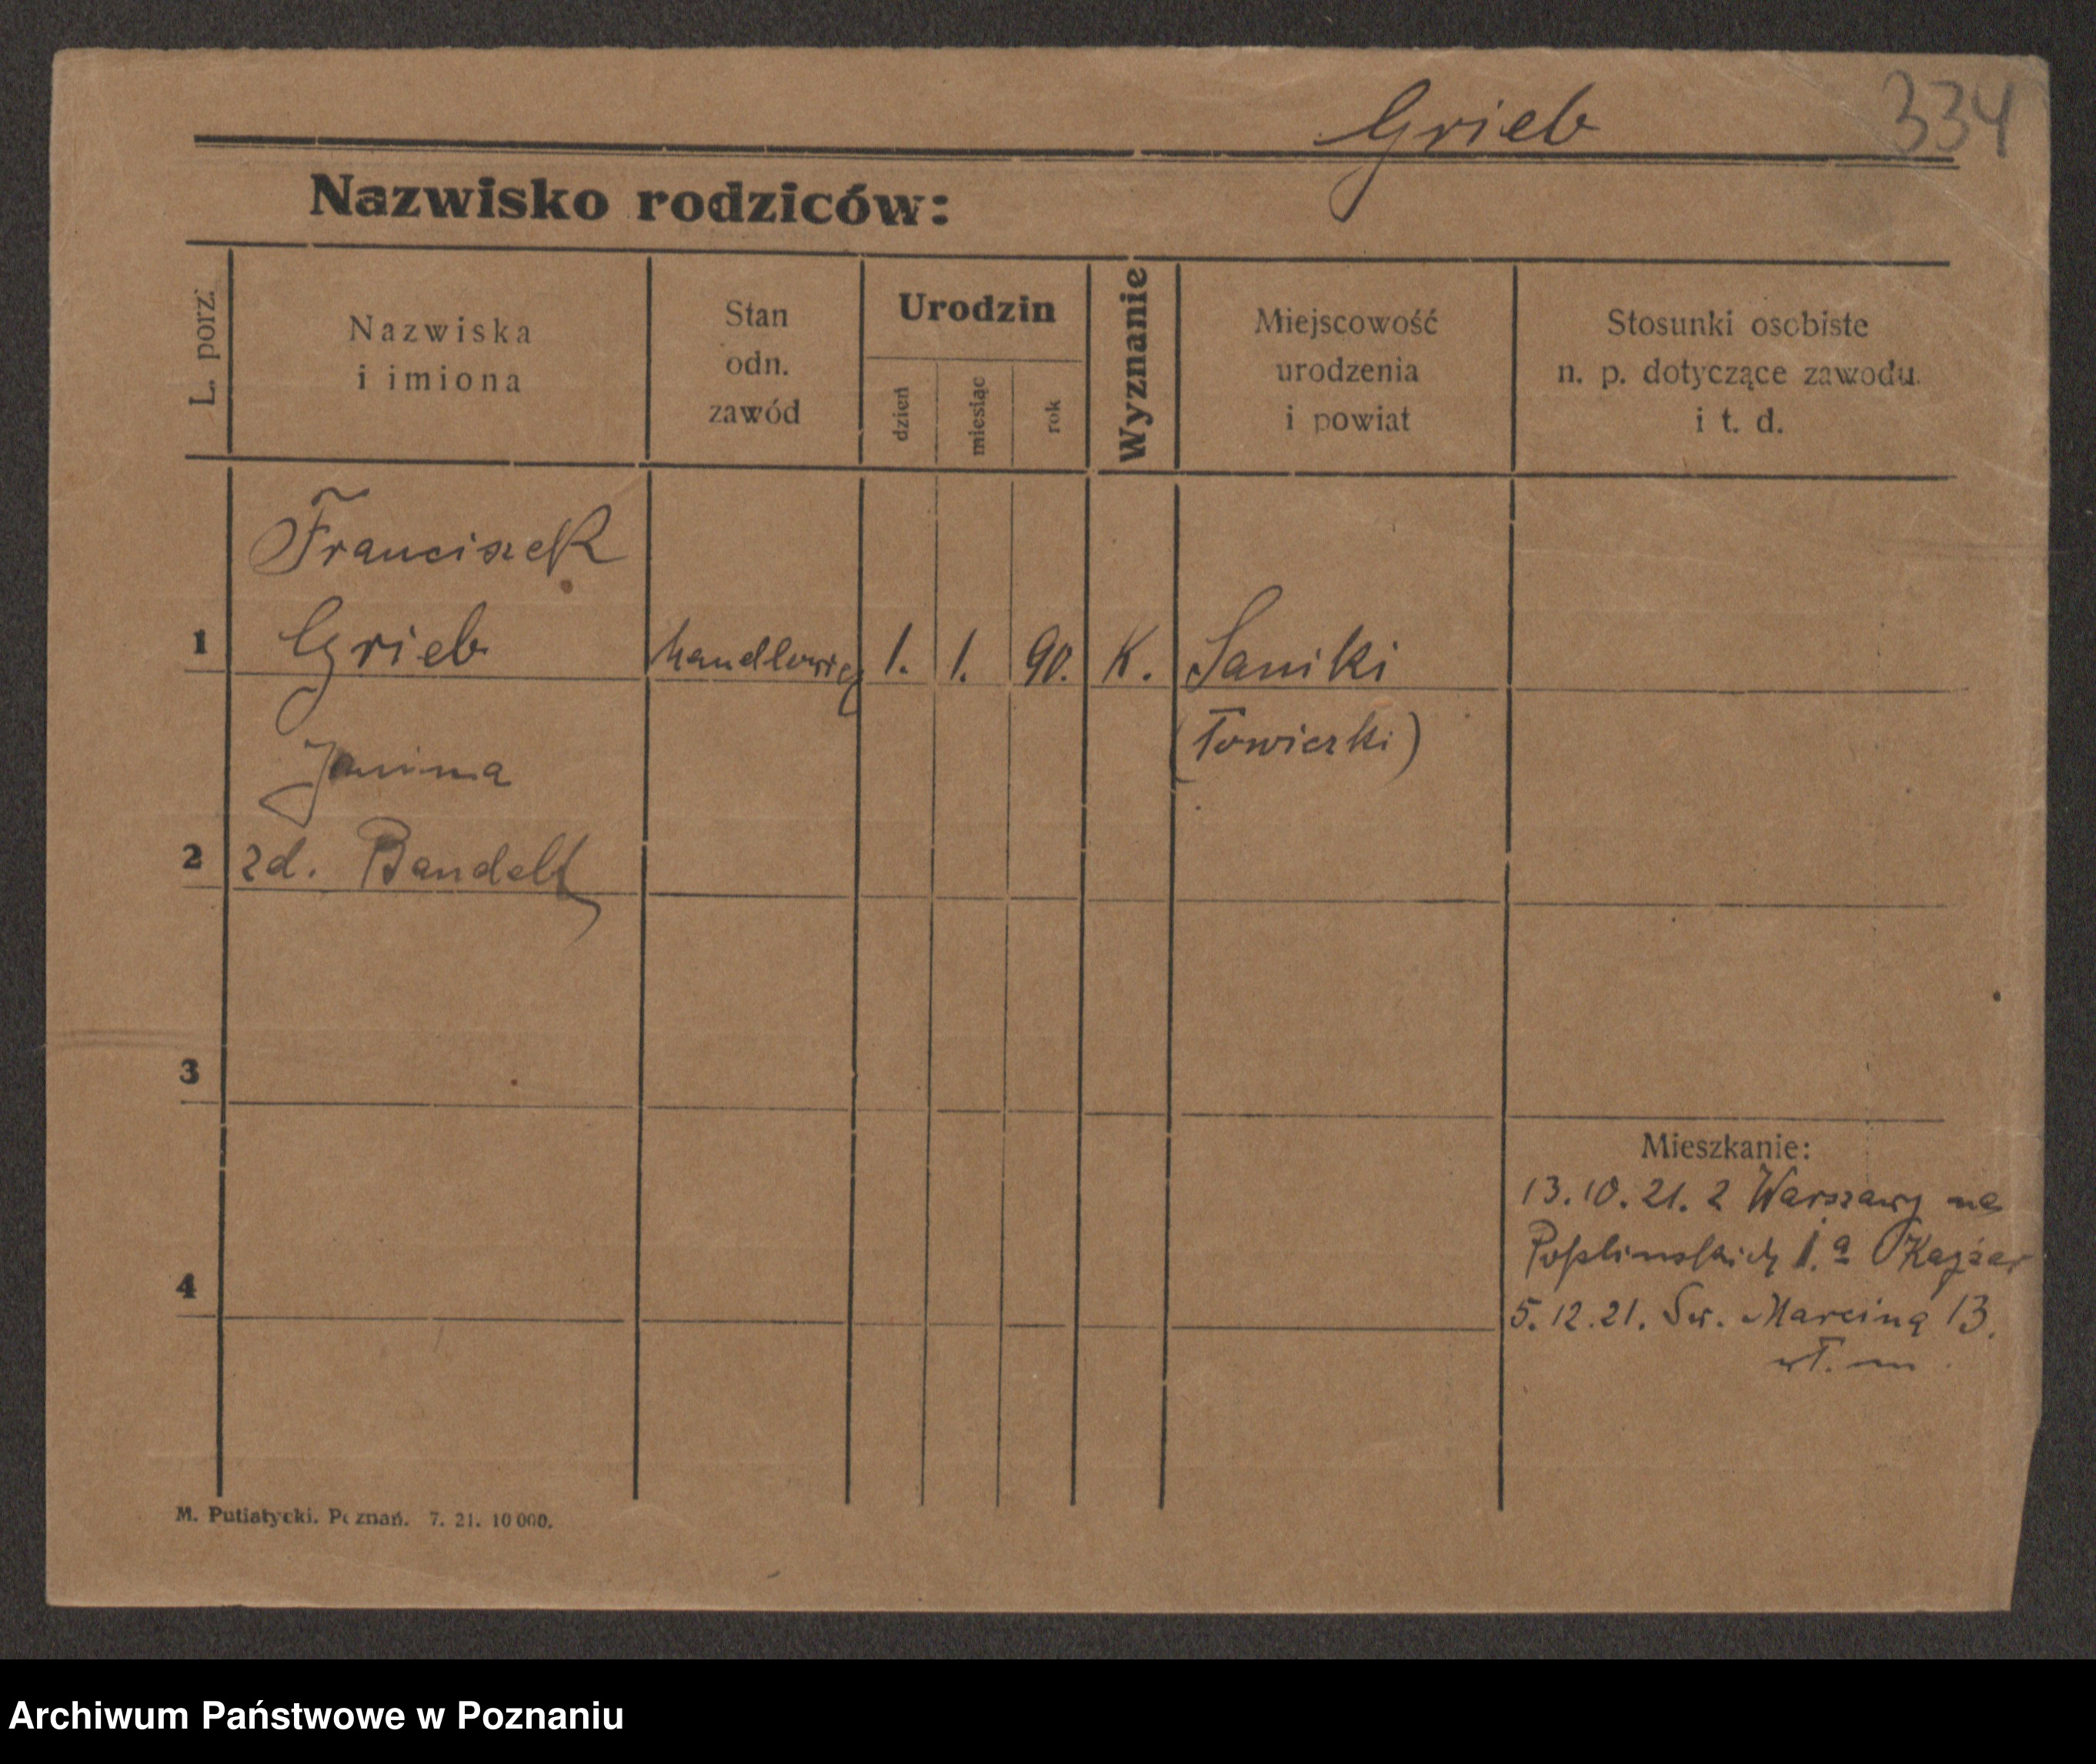 Grieb 334
Nazwisko rodziców:
L. porz.
Nazwiska
i imiona
Stan
odn.
zawód
Urodzin
dzień
miesiąc
rok
Wyznanie
Miejscowość
urodzenia
i powiat
Stosunki osobiste
n. p. dotyczące zawodu.
i t. d.
Franciszek
1 Grieb handlowiec 1. 1. 90. K. Saniki
(Łowiczki)
Janina
2 zd. Bandelt
3
Mieszkanie:
13.10.21. z Warszawy na
1.a
4
5.12.21. Św. Marcina 13.
wł. m.
M. Putiatycki. Poznań. 7. 21. 10 000.
Archiwum Państwowe w Poznaniu